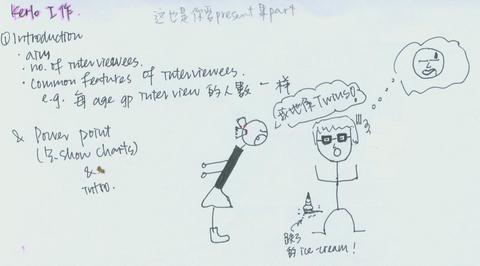 Kerlo 工作.
这也是你要present 果part
① Introduction
· aim
· no. of interviewees.
· common features of interviewees.
e.g. 每 age gp interview 的人數 一样
& Power point
(show charts)
&
intro.
Twins!
的 ice-cream!